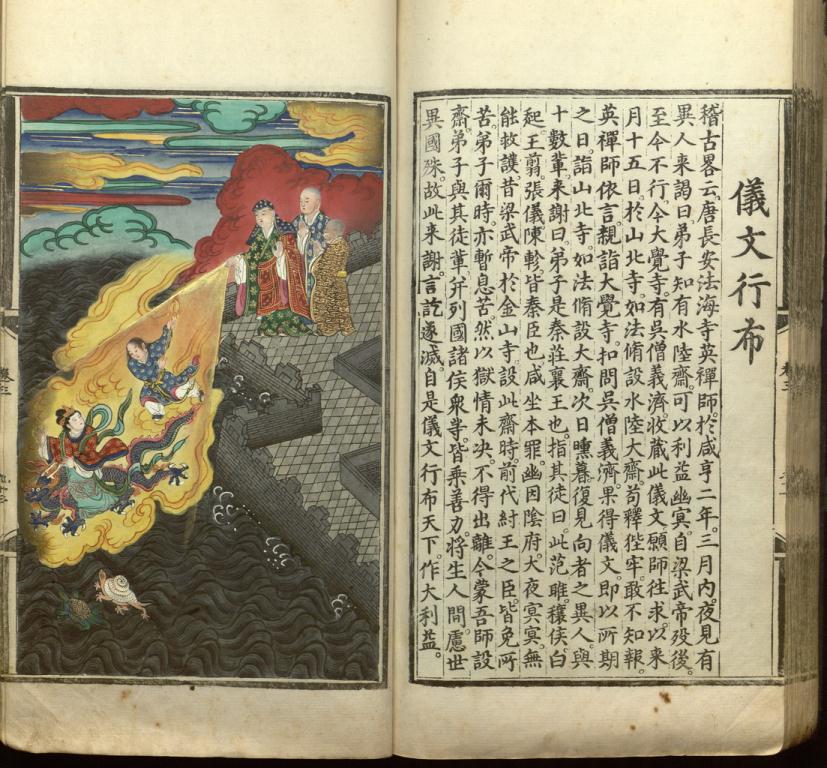 儀文行布
稽古畧云。唐長安法海寺英禪師。於咸亨二年。三月內。夜見有
異人來謁曰。弟子知有水陸齋。可以利益幽冥。自梁武帝歿後。
至今不行。今大覺寺。有吳僧義濟。收蔵此儀文。願師往求。以來
月十五日。於山北寺。如法脩設水陸大齋。苟釋狴牢。敢不知報。
英禪師依言。親詣大覺寺。扣問吳僧義濟。果得儀文。即以所期
之日。詣山北寺。如法脩設大齋。次日曛暮。復見向者之異人。與
十數輩。來謝曰。弟子是秦莊襄王也。指其徒曰。此范睢。穰侯。白
起。王翦。張儀。陳軫。皆秦臣也。咸坐本罪。幽囚陰府。大夜冥冥。無
能救護。昔梁武帝於金山寺設此齋時。前代紂王之臣。皆免所
苦。弟子爾時。亦暫息苦。然以獄情未決。不得出離。今蒙吾師設
齋。弟子與其徒輩。并列國諸侯衆等。皆乘善力。將生人間。慮世
異國殊。故此來謝。言訖遂滅。自是儀文行布天下。作大利益。
卷三